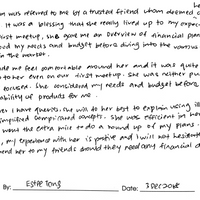 was referred to me by a trusted friend whom deemed
It was a blessing that she really lived up to my expec
first meetup, she gave me an overview of financial plan
my needs and budget before diving into the various
in the market.
me feel comfortable around her and it was quite
to her even on our first meetup. She was neither pu
focused. She considered my needs and budget before
ability of products for me.
I have queries, she was to her best to explain using ill
simplified complicated concepts. She was efficient in her
went the extra mile to do a round up of my plans.
my experience with her is positive and I will not hesitate
her to my friends should they need any financial a
By: Estee Tong Date: 3 Dec 2018